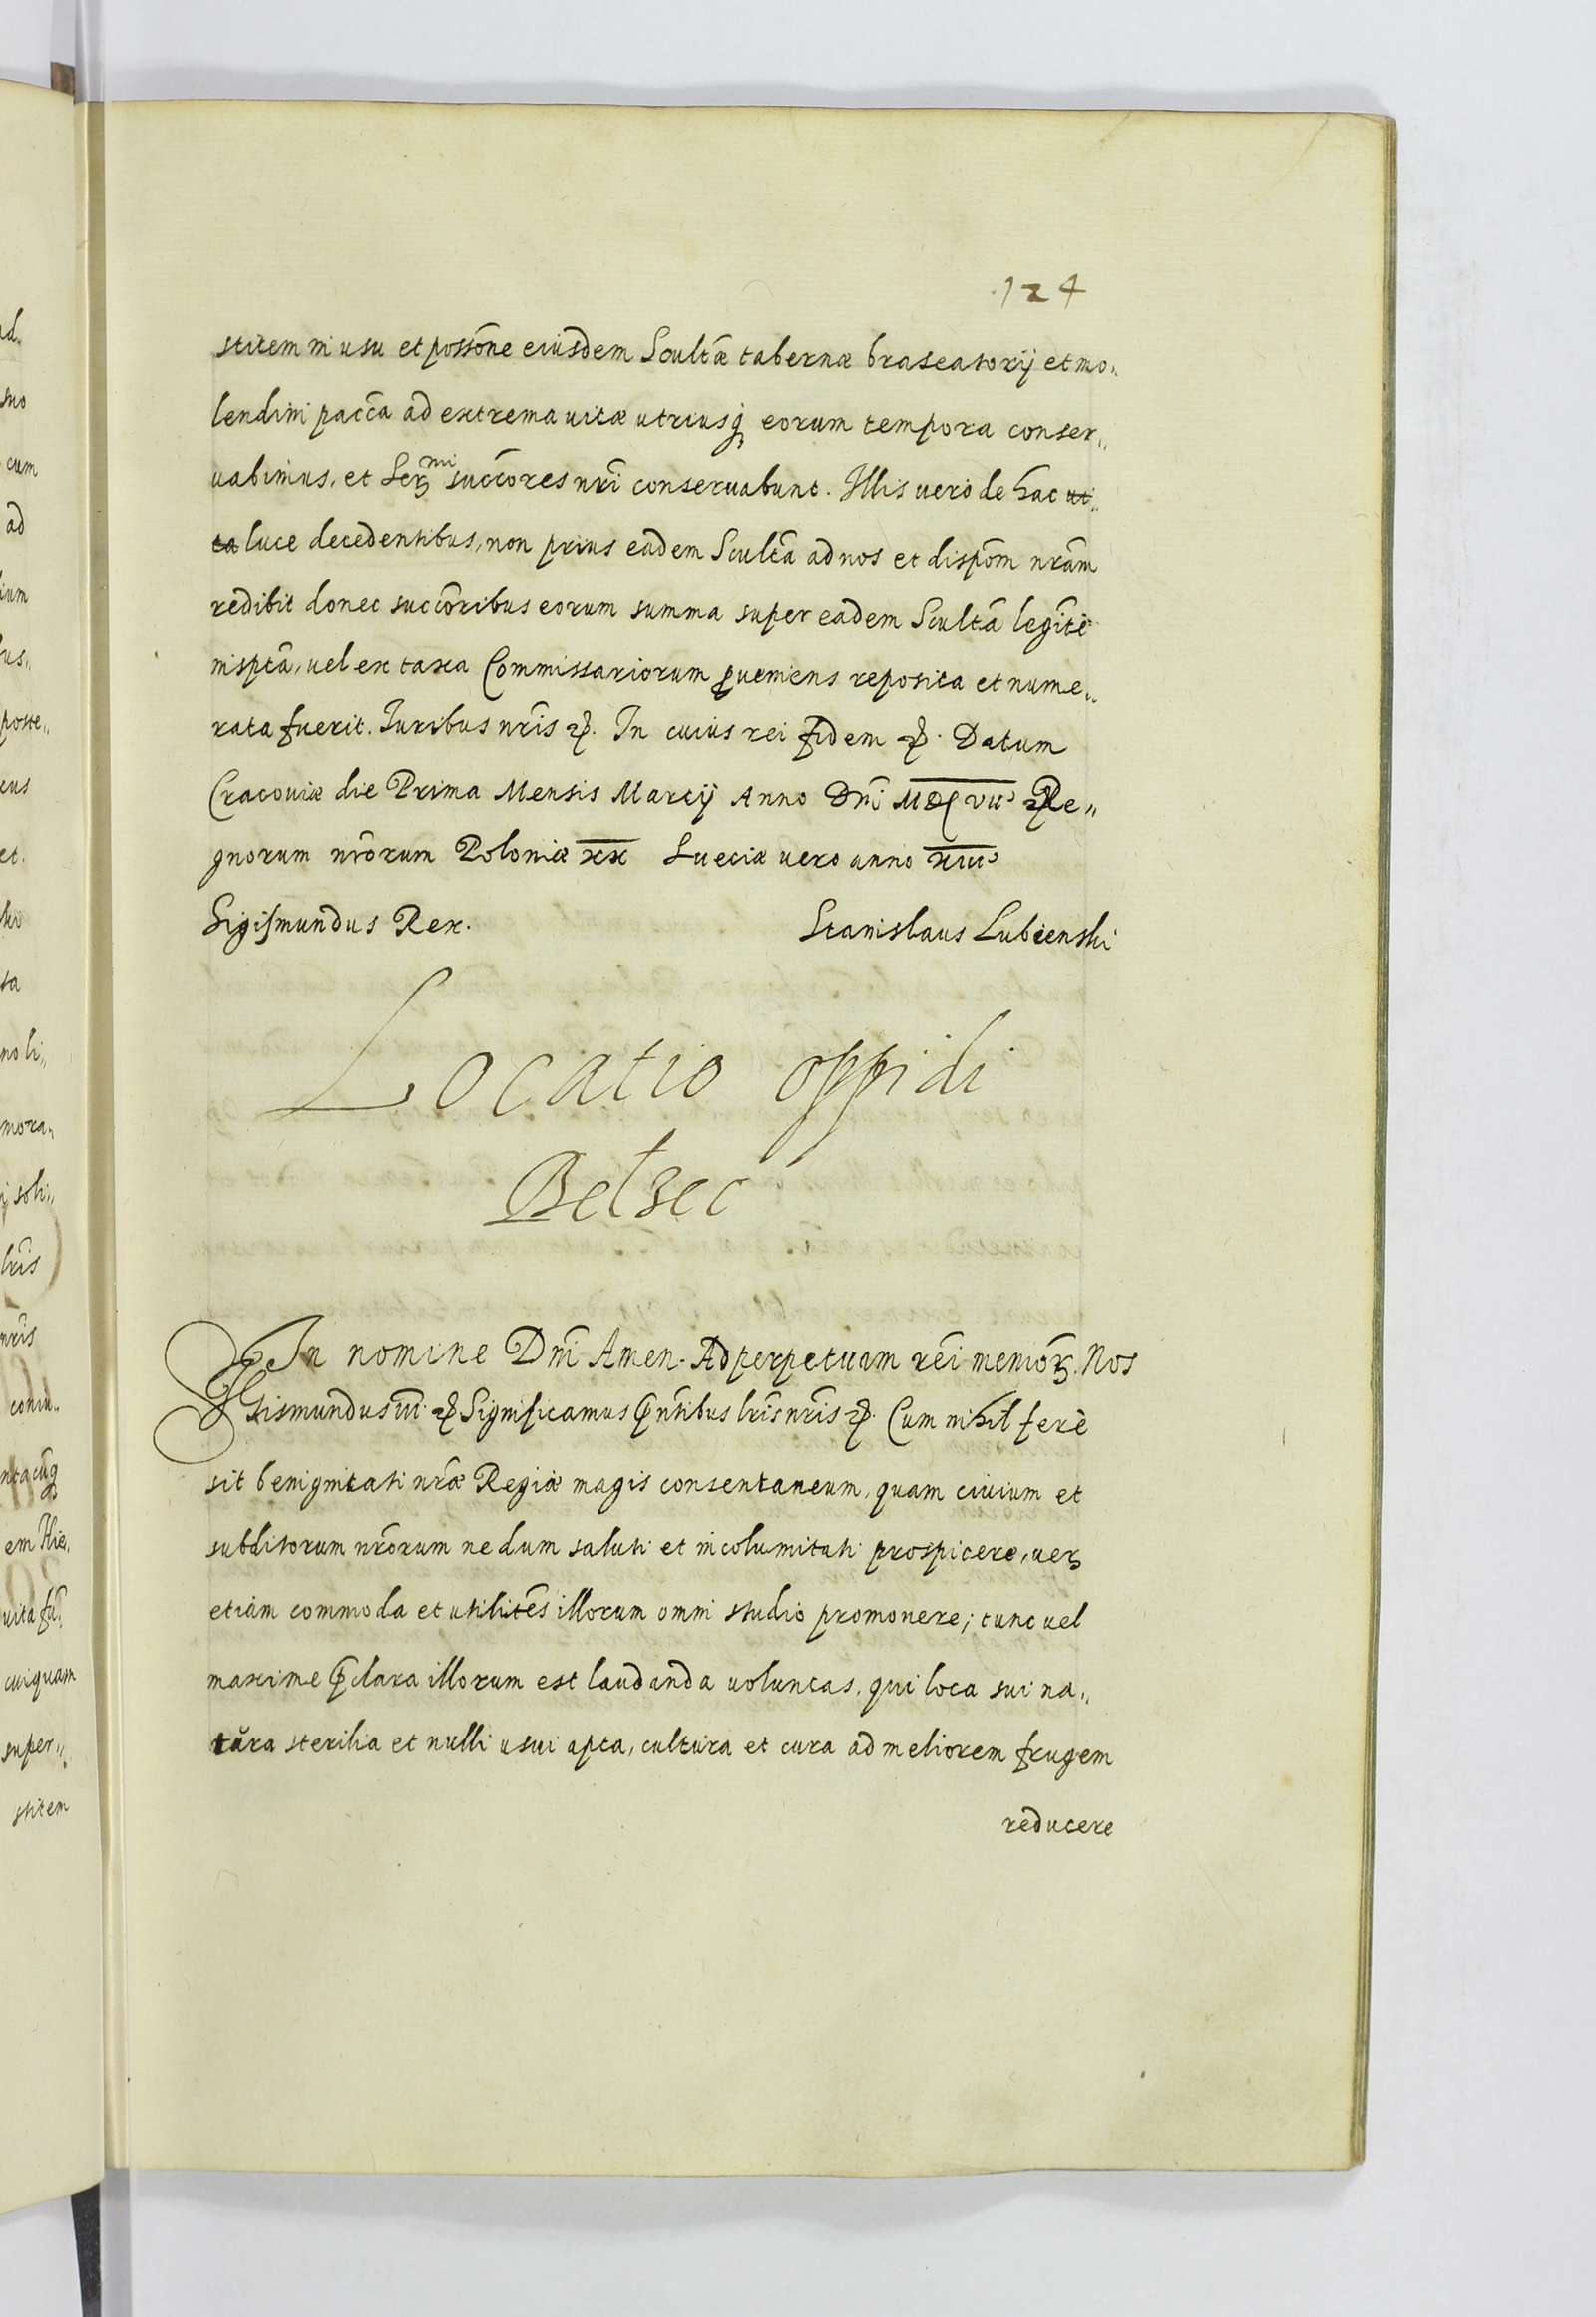 124
stitem in usu et possõne eiusdem Scultæ tabernæ braseatorij et mo„
lendini paccã ad extrema uitæ utriusq; eorum tempora conser„
uabimus, et Serꝫmi succores nr̃i conseruabunt. Illis uero de hac ui„
ta luce decedentibus, non prius eadem Scultã ad nos et dispõm nrãm
redibit donec succõribus eorum summa super eadem Scultã legitẽ
insptã, uel ex taxa Commissariorum ꝓueniens reposita et nume„
rata fuerit. Iuribus nr̃is ꝛc̃. In cuius rei fidem ꝛc̃. Datum
Cracouiæ die Prima Mensis Martij Anno Dnĩ MDCVII° Re„
gnorum nrõrum Poloniæ xx Sueciæ uero anno xiii°
Sigismundus Rex. Stanislaus Lubienski
Locatio oppidi
Bełzec
In nomine Dnĩ Amen. Ad perpetuam rei memorꝫ. Nos
Sigismundus iii. ꝛc̃ Significamus p̃ntibus lr̃is nr̃is ꝛc̃. Cum nihil ferè
sit benignitati nræ̃ Regiæ magis consentaneum, quam ciuium et
subditorum nrõrum ne dum saluti et incolumitati prospicere, uerꝫ
etiam commoda et utilitẽs illorum omni studio promouere; tunc uel
maxime p̃clara illorum est laudanda uoluntas, qui loca sui na„
tŭra sterilia et nulli usui apta, cultura et cura ad meliorem frugem
reducere
ad„
suo
cum
ad
poste„
et.
sa
no li„
mora„
soli„
lr̃is
nr̃is
em Hie„
cuiquam
super„
stitem